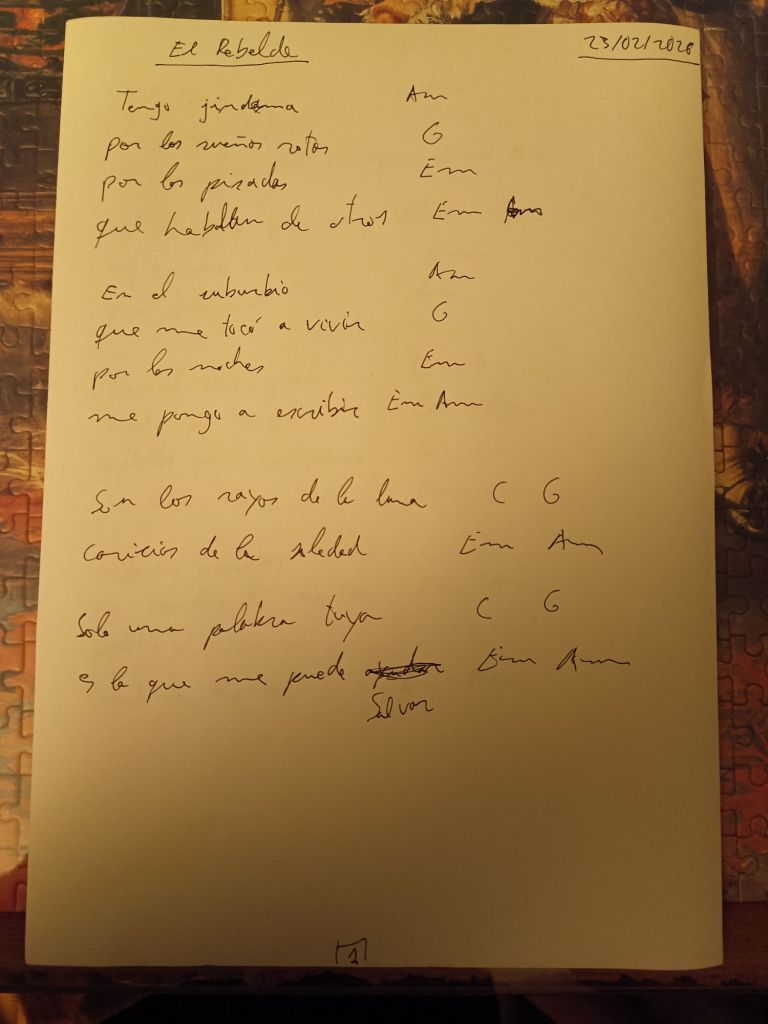 El Rebelde 23/02/2026
Tengo jindama Am
por los sueños rotos G
por las pisadas Em
que hablan de otros Em
En el suburbio Am
que me tocó a vivir G
por las noches Em
me pongo a escribir Em Am
Son los rayos de la luna C G
caricias de la soledad Em Am
Solo una palabra tuya C G
es la que me puede Em Am
Salvar
1